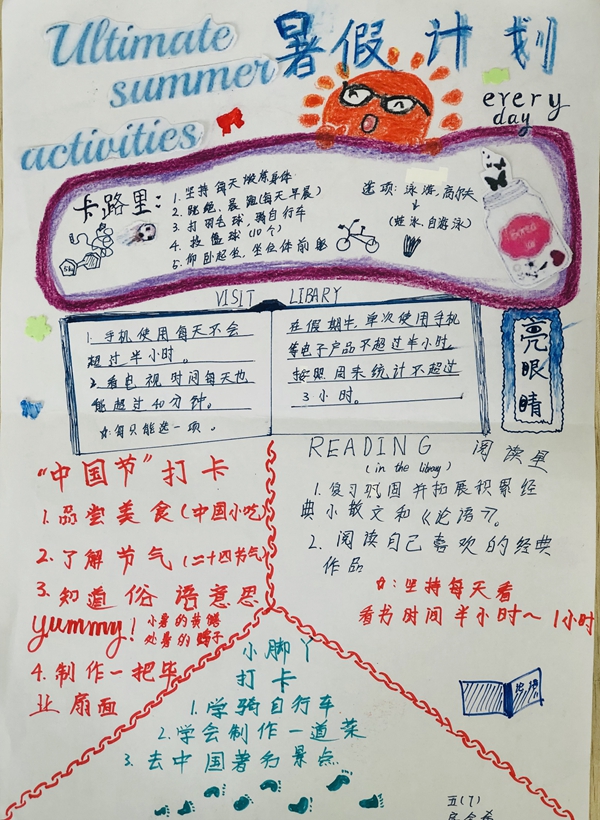 Ultimate
summer
activities
暑假计划
every
day
卡路里:
1. 坚持每天锻炼身体
2. 跳绳、晨跑(每天早晨)
3. 打羽毛球,骑自行车
4. 投篮球(10个)
5. 仰卧起坐,坐位体前屈
选项: 泳游,高尔夫
(蛙泳,自游泳)
VISIT LIBARY
1. 手机使用每天不会
超过半小时。
2. 看电视时间每天也
能超过40分钟。
☆:每只能选一项。
在假期中,单次使用手机
等电子产品不超过半小时。
按照周末统计不超过
3小时。
亮眼睛
“中国节”打卡
1. 品尝美食(中国小吃)
2. 了解节气(二十四节气)
3. 知道俗语意思
yummy!
小暑的黄鳝
处暑的鸭子
4. 制作一把毕
业扇面
READING 阅读星
(in the libary)
1. 复习巩固并拓展积累经
典小散文和《论语》。
2. 阅读自己喜欢的经典
作品
☆:坚持每天看
看书时间半小时~1小时
小脚丫
打卡
1. 学骑自行车
2. 学会制作一道菜
3. 去中国著名景点
五(7)